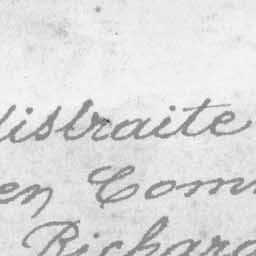 distraite
en Com
Richard